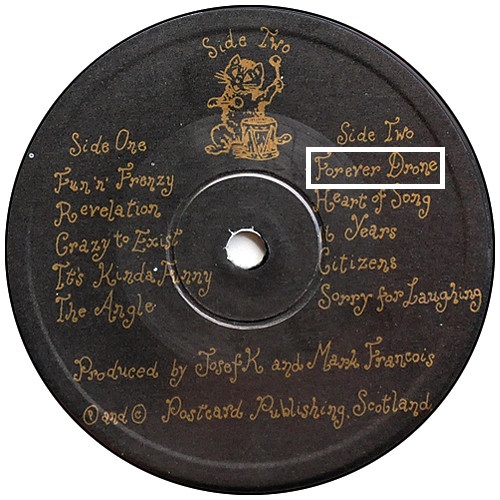 Side Two
Side One
Fun 'n' Frenzy
Revelation
Crazy to Exist
It's Kinda Funny
The Angle
Side Two
Forever Drone
Heart of Song
Years
Citizens
Sorry for Laughing
Produced by Josef K and Mark Francois
Ⓟ and © Postcard Publishing, Scotland